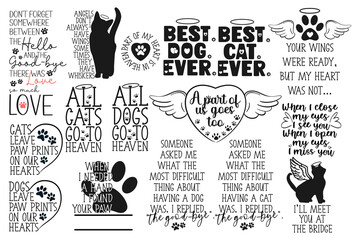 DON'T FORGET
SOMEWHERE
BETWEEN
THE Hello
AND THE
Good-bye
THERE WAS
Love
so much
LOVE
CATS
LEAVE
PAW PRINTS
ON OUR
HEARTS
DOGS
LEAVE
PAW PRINTS
ON OUR
HEARTS
WHISKERS
PART OF MY
HEART IS IN
HEAVEN
ALL
CATS
GO TO
HEAVEN
ALL
DOGS
GO TO
HEAVEN
WHEN
I NEEDED
A HAND
I FOUND
YOUR
PAW
BEST.
DOG.
EVER.
BEST.
CAT.
EVER.
A part of
us goes
too
SOMEONE
ASKED ME
WHAT THE
MOST DIFFICULT
THING ABOUT
HAVING A
DOG WAS.
I REPLIED,
"the good-bye".
SOMEONE
ASKED ME
WHAT THE
MOST DIFFICULT
THING ABOUT
HAVING A
CAT WAS.
I REPLIED,
"the good-bye".
YOUR WINGS
WERE READY,
BUT MY
HEART WAS
NOT...
When I close
my eyes
I see you
When I open
my eyes
I miss you
I'LL MEET
YOU AT
THE BRIDGE